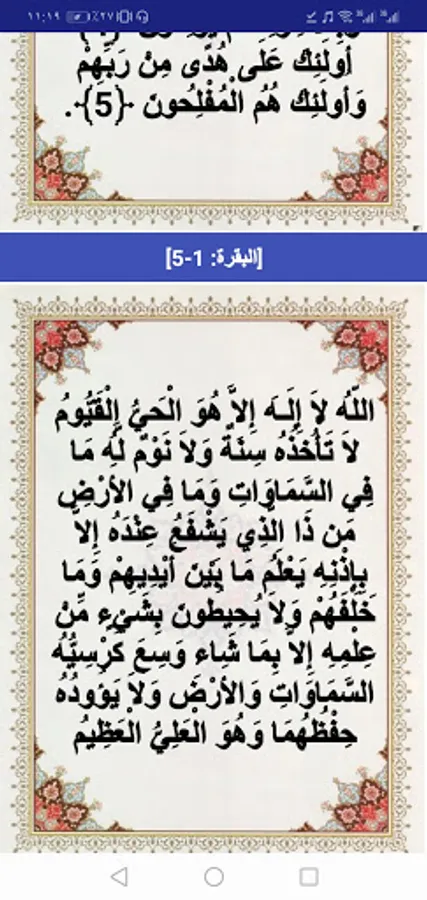 ١١:١٩ ٪٢٧
أُولَئِكَ عَلَى هُدًى مِنْ رَبِّهِمْ
وَأُولَئِكَ هُمُ الْمُفْلِحُونَ {5}.
[البقرة: 1-5]
اللّهُ لاَ إِلَـهَ إِلاَّ هُوَ الْحَيُّ الْقَيُّومُ
لاَ تَأْخُذُهُ سِنَةٌ وَلاَ نَوْمٌ لَّهُ مَا
فِي السَّمَاوَاتِ وَمَا فِي الأَرْضِ
مَن ذَا الَّذِي يَشْفَعُ عِنْدَهُ إِلاَّ
بِإِذْنِهِ يَعْلَمُ مَا بَيْنَ أَيْدِيهِمْ وَمَا
خَلْفَهُمْ وَلاَ يُحِيطُونَ بِشَيْءٍ مِّنْ
عِلْمِهِ إِلاَّ بِمَا شَاء وَسِعَ كُرْسِيُّهُ
السَّمَاوَاتِ وَالأَرْضَ وَلاَ يَؤُودُهُ
حِفْظُهُمَا وَهُوَ الْعَلِيُّ الْعَظِيمُ